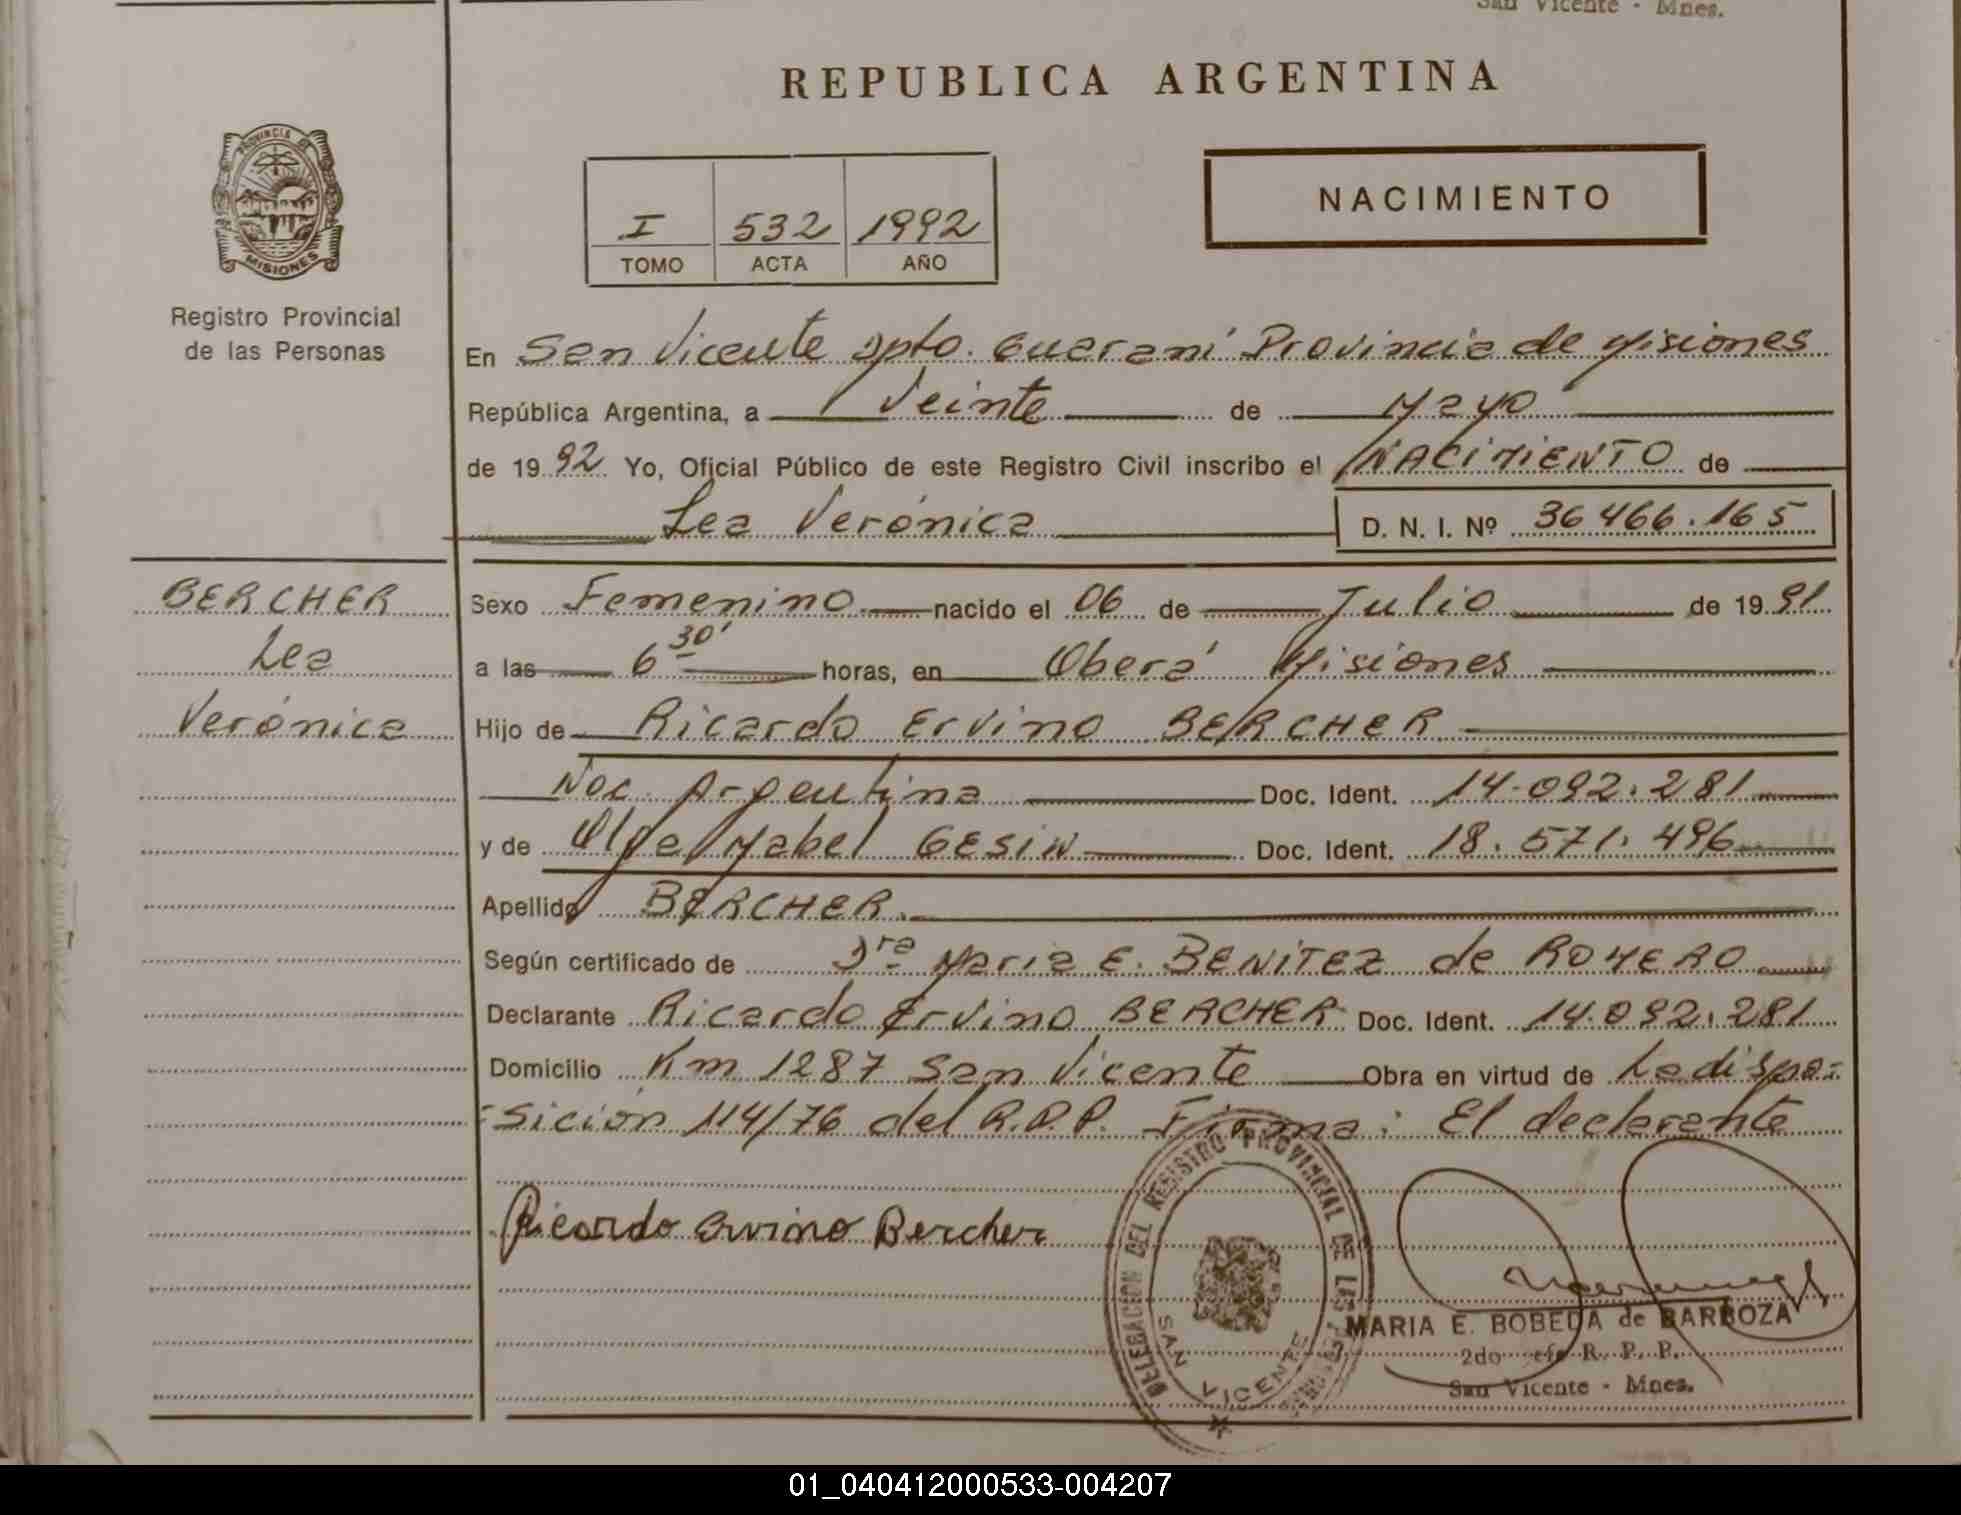 San Vicente - Mnes.
REPUBLICA ARGENTINA
PROVINCIA DE
MISIONES
Registro Provincial
de las Personas
I 532 1992
TOMO ACTA AÑO
NACIMIENTO
En San Vicente Dpto. Guaraní Provincia de Misiones
República Argentina, a Veinte de Mayo
de 1992 Yo, Oficial Público de este Registro Civil inscribo el NACIMIENTO de
Lea Verónica D. N. I. Nº 36466.165
BERCHER
Lea
Verónica
Sexo Femenino nacido el 06 de Julio de 1991
a las 6 30' horas, en Oberá Misiones
Hijo de Ricardo Ervino BERCHER
Nac. Argentina Doc. Ident. 14.092.281
y de Olga Mabel GESIN Doc. Ident. 18.571.496
Apellido BERCHER.
Según certificado de Dra Maria E. BENITEZ de ROMERO
Declarante Ricardo Ervino BERCHER Doc. Ident. 14.092.281
Domicilio Km 1287 San Vicente Obra en virtud de La dispo=
=sición 114/76 del R.P.P. Firma: El declarante
Ricardo Ervino Bercher
DELEGACION DEL REGISTRO PROVINCIAL DE LAS PERSONAS
SAN VICENTE
MARIA E. BOBEDA de BARBOZA
2do Jefe R. P. P.
San Vicente - Mnes.
01_040412000533-004207